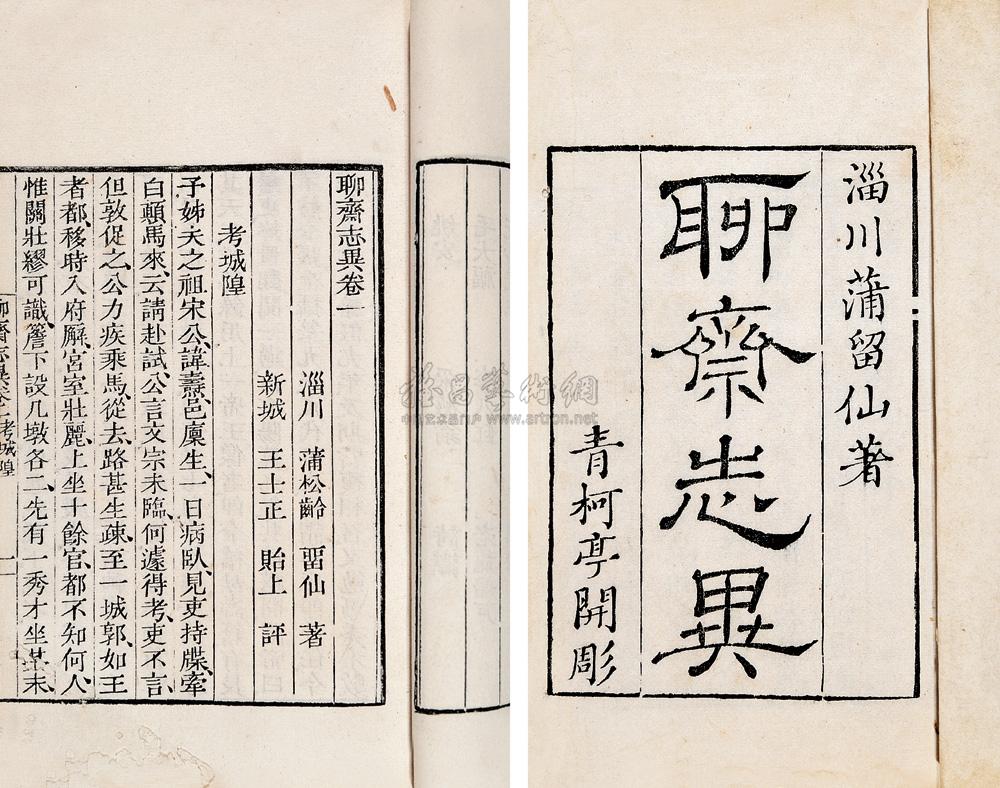 淄川蒲留仙著
聊齋志異
青柯亭開彫
聊齋志異卷一
淄川　蒲松齡　留仙　著
新城　王士正　貽上　評
考城隍
予姊夫之祖宋公、諱燾、邑廩生、一日病臥、見吏持牒、牽
白顛馬來、云請赴試、公言文宗未臨、何遽得考、吏不言、
但敦促之、公力疾乘馬、從去、路甚生疎、至一城郭、如王
者都、移時入府廨、宮室壯麗、上坐十餘官、都不知何人、
惟關壯繆可識、簷下設几墩各二、先有一秀才坐其末、
聊齋志異卷一 考城隍 一
www.artron.net